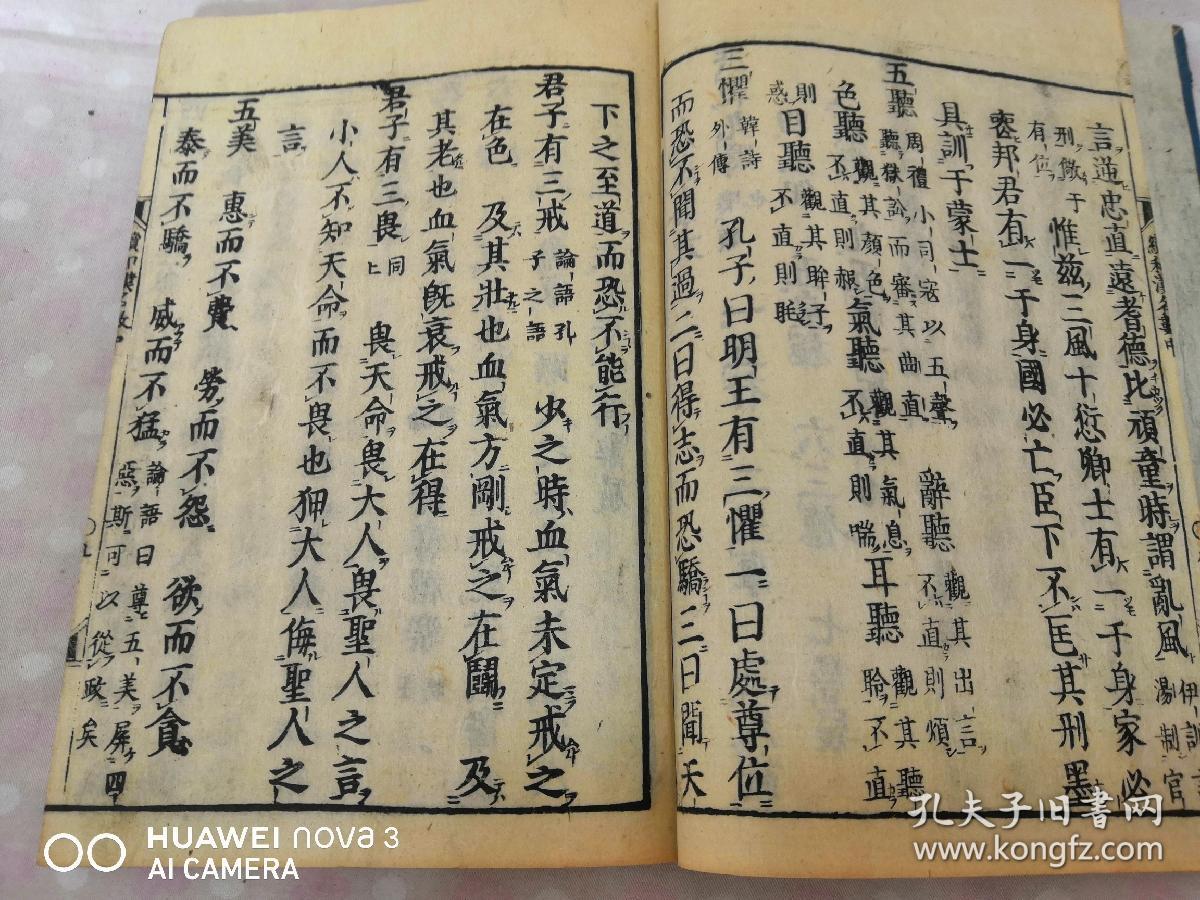 言逆忠直遠耆德比頑童時謂亂風
伊訓
湯制官
刑儆于
有位
惟茲三風十愆卿士有一于身家必
喪邦君有一于身國必亡臣下不匡其刑墨
具訓于蒙士
五聽
周禮小司寇以五聲
聽獄訟而審其曲直
辭聽
觀其出言
不直則煩
色聽
觀其顏色
不直則赧
氣聽
觀其氣息
不直則喘
耳聽
觀其聽
聆不直
則
惑
目聽
觀其眸子
不直則眊
三懼
韓詩
外傳
孔子曰明王有三懼一曰處尊位
而恐不聞其過二曰得志而恐驕三曰聞天
下之至道而恐不能行
君子有三戒
論語孔
子之語
少之時血氣未定戒之
在色
及其壯也血氣方剛戒之在鬬
及
其老也血氣既衰戒之在得
君子有三畏
同
上
畏天命畏大人畏聖人之言
小人不知天命而不畏也狎大人侮聖人之
言
五美
惠而不費
勞而不怨
欲而不貪
泰而不驕
威而不猛
論語曰尊五美屏四
惡斯可以從政矣
HUAWEI nova 3
AI CAMERA
孔夫子旧书网
www.kongfz.com